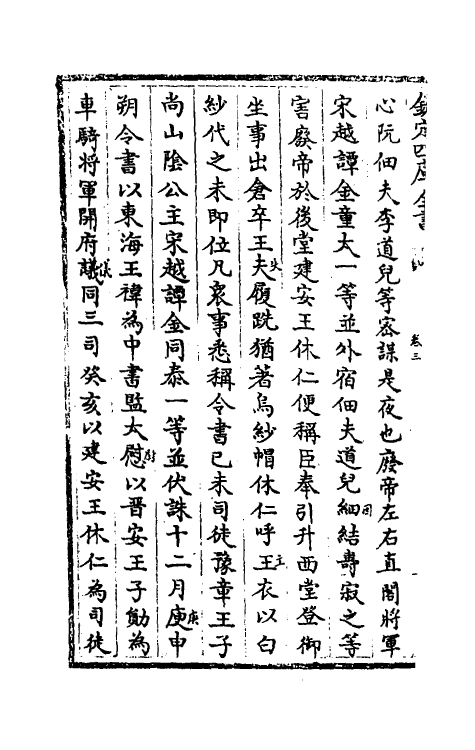 欽定四庫全書
卷三
心阮佃夫李道兒等密謀是夜也廢帝左右直閤將軍
宋越譚金童太一等並外宿佃夫道兒細結壽寂之等
害廢帝於後堂建安王休仁便稱臣奉引升西堂登御
坐事出倉卒王夫履跣猶著烏紗帽休仁呼王衣以白
紗代之未即位凡衆事悉稱令書已未司徒豫章王子
尚山隂公主宋越譚金同泰一等並伏誅十二月庚申
朔令書以東海王禕為中書監太慰以晋安王子勛為
車騎將軍開府議同三司癸亥以建安王休仁為司徒